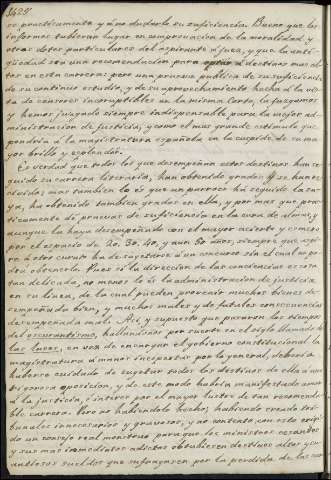 se practicamente y à no dudarlo su suficiencia. Bueno que los
informes tubieran lugar en comprovacion de la moralidad, y
otras dotes particulares del aspirante à juez, y que la anti-
güedad sea una recomendacion para optar à destinos mas al-
tos en esta carrera: pero una prueva publica de su suficiencia
de su continuo estudio, y de su aprovechamiento hecha à la vis-
ta de censores incorruptibles en la misma Corte, la juzgamos
y hemos juzgado siempre indispensable para la mejor ad-
ministracion de justicia, y como el mas grande estimulo que
pondria à la magistratura española en la cuspide de su ma-
yor brillo y esplendor.
Es verdad que todos los que desempeñan estos destinos han se-
guido su carrera literaria, han obtenido grados, y se han re-
cibido; mas tambien lo es que un parroco há seguido la su-
ya, ha obtenido tambien grados en ella, y por mas que prac-
ticamente dé pruevas de suficiencia en la cura de almas, y
aunque la haya desempeñado con el mayor acierto y esmero
por el espacio de 20, 30, 40, y aun 50 años, siempre que aspi-
re à otro curato ha de sugetarse à un concurso sin el cual no po-
dra obtenerlo. Pues si la direccion de las conciencias es cosa
tan delicada, no menos lo es la administracion de justicia
en su linea, de la cual pueden provenir muchos vienes de-
sempeñada bien, y muchos males y de fatales consecuencias
desempeñada mal. Asi, y supuesto que pasaron los tiempos
del oscurantismo, hallandonos por suerte en el siglo llamado de
las luces, en vez de encargar el gobierno constitucional la
magistratura à manos incapaces por lo general, deberia
haberse cuidado de sugetar todos los destinos de ella à una
rigorosa oposicion, y de este modo habria manifestado amor
à la justicia, é interes por el mayor lustre de tan recomenda-
ble carrera. Pero no habiendolo hecho, habiendo creado tri-
bunales innecesarios y gravosos, y no contento con esto erigi-
do un consejo real monstruo para que los ministros cesantes
y sus mas inmediatos adictos obtubiesen destinos altos y cu-
antiosos sueldos que sufragasen por la perdida de las car